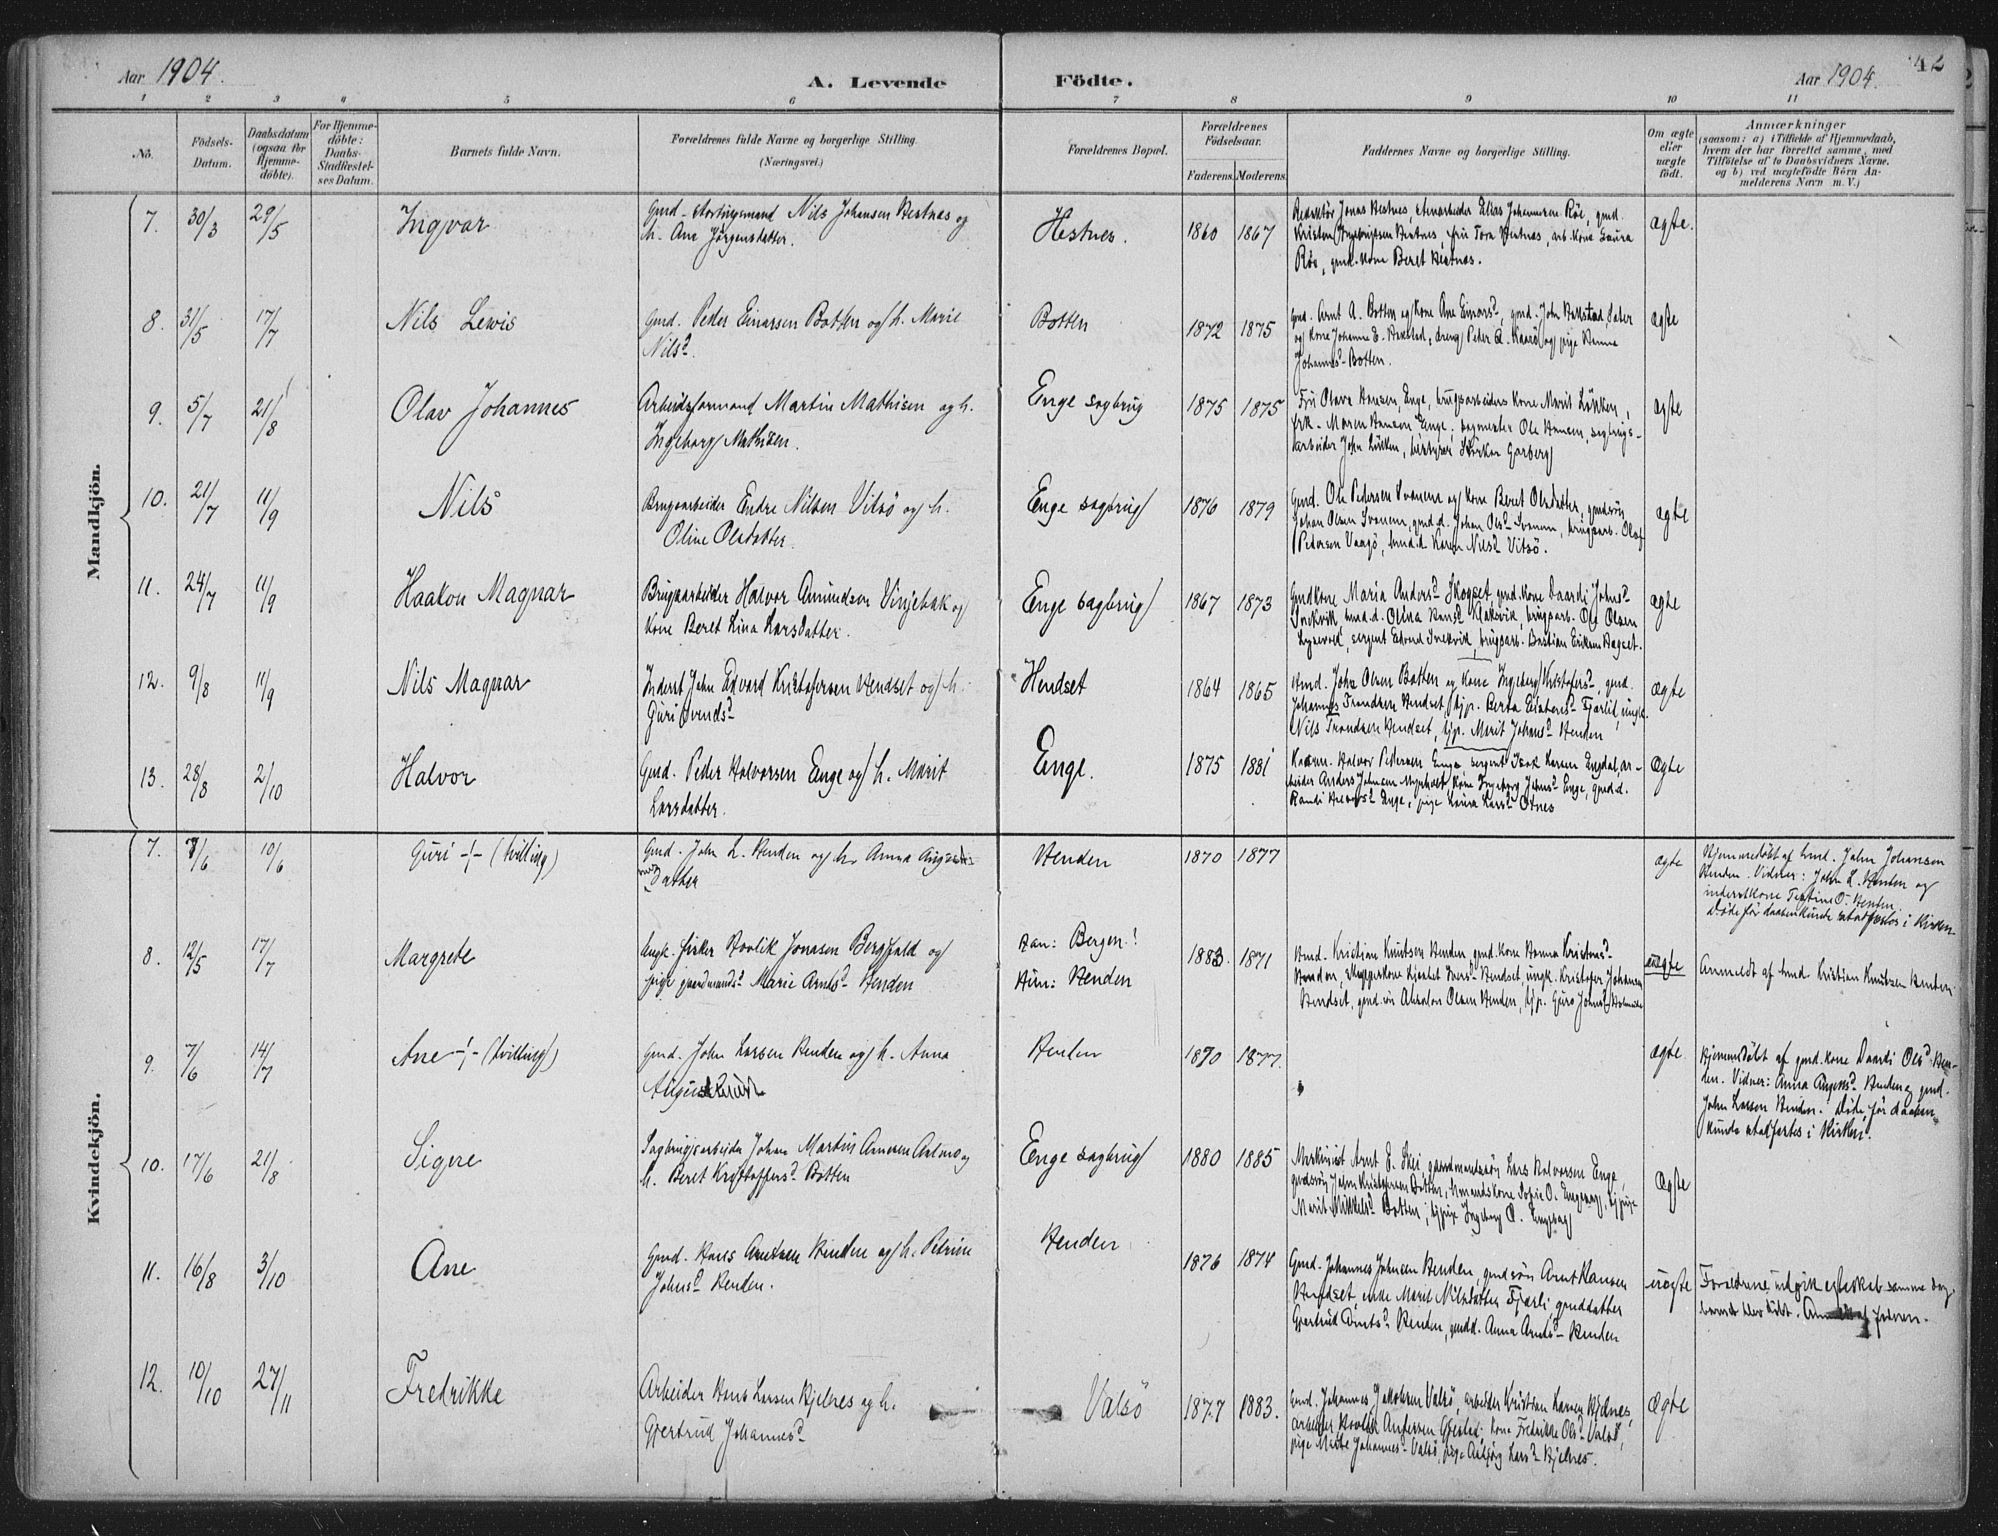 Aar 1904.
A. Levende
Födte.
Aar 1904.
42
1 2 3 4 5 6 7 8 9 10 11
No.
Födsels-
Datum.
Daabsdatum
(ogsaa for
Hjemme-
döbte).
For Hjemme-
döbte:
Daabs-
Stadfæstel-
ses Datum.
Barnets fulde Navn.
Forældrenes fulde Navne og borgerlige Stilling.
(Næringsvei.)
Forældrenes Bopæl.
Forældrenes
Födselsaar.
Faderens. Moderens.
Faddernes Navne og borgerlige Stilling.
Om ægte
eller
uægte
födt.
Anmærkninger
(saasom: a) i Tilfælde af Hjemmedaab,
hvem der har forrettet samme, med
Tilföielse af to Daabsvidners Navne,
og b) ved uægtefödte Börn An-
melderens Navn m. V.)
Mandkjön.
7. 30/3 29/5 Ingvar
Gmd. Stortingsmand Nils Johansen Hestnes og
h. Ane Jörgensdatter.
Hestnes. 1860 1867
Redaktör Jonas Hestnes, Elias Johannesen Röe, gmd.
Kristen Hestnes, fru Tora Hestnes, arb. kone Laura
Röe, gmd. kone Beret Hestnes.
ægte.
8. 31/5 17/7 Nils Lewis
Gmd. Peder Einarsen Botten og h. Marie
Nilsd.
Botten 1872 1875
Gmd. Arnt A. Botten og kone Ane Einarsd, gmd. John
og kone Johanne E. dreng Peder A. og pige Hanna
Johannesd. Botten.
ægte
9. 5/7 21/8 Olav Johannes
Arbeidsformand Martin Mathisen og h.
Ingeborg Mathisen.
Enge sagbrug 1875 1875
Fru Olava Hansen, Enge, brugsarbeiders kone Marit Lökken,
frk. Maren Hansen Enge, sagmester Ole Hansen, sagbrugs-
arbeider John Lökken, bestyrer Störker Garberg
ægte
10. 21/7 11/9 Nils
Brugsarbeider Endre Nilsen Vitsö og h.
Oline Olsdatter.
Enge sagbrug 1876 1879
Gmd. Ole Pedersen Svanem og kone Beret Olsdatter, gmdsön
Johan Olsen Svanem, gmd.d. Johan Olsd. Svanem, brugsarb. Olaf
Pedersen Vaagö, hmd.d. Karen Nilsd. Vitsö.
ægte
11. 24/7 11/9 Haakon Magnar
Brugsarbeider Halvor Amundsen Vinjebak og
kone Beret Lina Larsdatter.
Enge sagbrug 1867 1873
Gmdkone Maria Andersd. Skogset, gmd. kone Daardi Johnsd.
Snekvik, hmd.d. Olina Hansd. Klaksvik, brugsarb. Ole Olsen
sergent Edvard Snekvik, brugsarb. Bastian Eriksen Hagset.
ægte
12. 9/8 11/9 Nils Magnar
Inderst John Edvard Kristofersen Hendset og h.
Guri Svendsd.
Hendset 1864 1865
Hmd. John Olsen Botten og kone Ingeborg Kristofersd., gmd.
Johannes Trondsen Hendset, tjp. Berta Fjærlid, ungk.
Nils Trondsen Hendset, tjp. Marit Johansd. Henden
ægte
13. 28/8 2/10 Halvor
Gmd. Peder Halvorsen Enge og h. Marit
Larsdatter.
Enge. 1875 1881
Halvor Pedersen Enge sergent Isak Larsen Engdal, ar-
beider Anders Johnsen kone Ingeborg Johnsd. Enge, gmd.d.
Randi Halvorsd. Enge, pige Laura Larsd. Otnes
ægte
Kvindekjön.
7. 7/6 10/6 Guri -¦- (tvilling)
Gmd. John L. Henden og h. Anna
datter
Henden 1870 1877
ægte
Hjemmedöbt af hmd. John Johansen
Henden. Vidner: John L. Henden og
inderstkone O. Henden.
Döde för daaben kunde stadfestes i kirken.
8. 12/5 17/7 Margrete
Ungk. fisker Rolik Jonasen Bergfald og
pige gaardmandsd. Marie Arntsd. Henden
Han: Bergen!
Hun: Henden
1883. 1871
Hmd. Kristian Knutsen Henden, gmd. kone Hanna Kristensd.
Henden, Skyggerkone Kjerstet Iversd. Hendset, ungk. Kristofer Johansen
Hendset, gmd.sön Absalon Olsen Henden, tjp. Guro Johnsd.
uægte
Anmeldt af hmd. Kristian Knutsen Henden.
9. 7/6 14/7 Ane -¦- (tvilling)
Gmd. John Larsen Henden og h. Anna
Henden 1870 1877.
ægte
Hjemmedöbt af gmd. kone Daardi Olsd. Hen-
den. Vidner: Anna Henden og gmd.
John Larsen Henden. Döde för daaben
kunde stadfæstes i kirken.
10. 17/6 21/8 Signe
Sagbrugsarbeider Johan Martius Arnesen og
h. Beret Kristoffersd. Botten
Enge sagbrug 1880 1885
Maskinist Arnt E. Skei, gaardmandssön Lars Halvorsen Enge,
gmdsön John Kristensen Botten, hmandskone Sofie O. Engehag, tjpige
Marit Mikkelsd. Botten, tjpige Ingeborg O. Engehag
ægte
11. 16/8 3/10 Ane
Gmd. Hans Arntsen Henden og h. Petrine
Johnsd. Henden.
Henden 1876 1874
Gmd. Johannes Johnsen Henden, gmdsön Arnt Hansen
Hendset, enke Marit Nilsdatter Fjærli, gmddatter
Gjertrud Arntsd. Henden, gmdd. Anna Arntsd. Henden
uægte
Forældrene indgik egteskab samme dag
barnet blev döbt. Anmeldt af faderen.
12. 10/10 27/11 Fredrikke
Arbeider Hans Larsen Kjelnes og h.
Gjertrud Johannesd.
Valsö 1877 1883.
Gmd. Johannes Jakobsen Valsö, arbeider Kristian Larsen Kjelnes,
arbeider Andersen kone Fredrikke Olsd. Valsö,
pige Johannesd. Valsö, pige Larsd. Kjelnes.
ægte